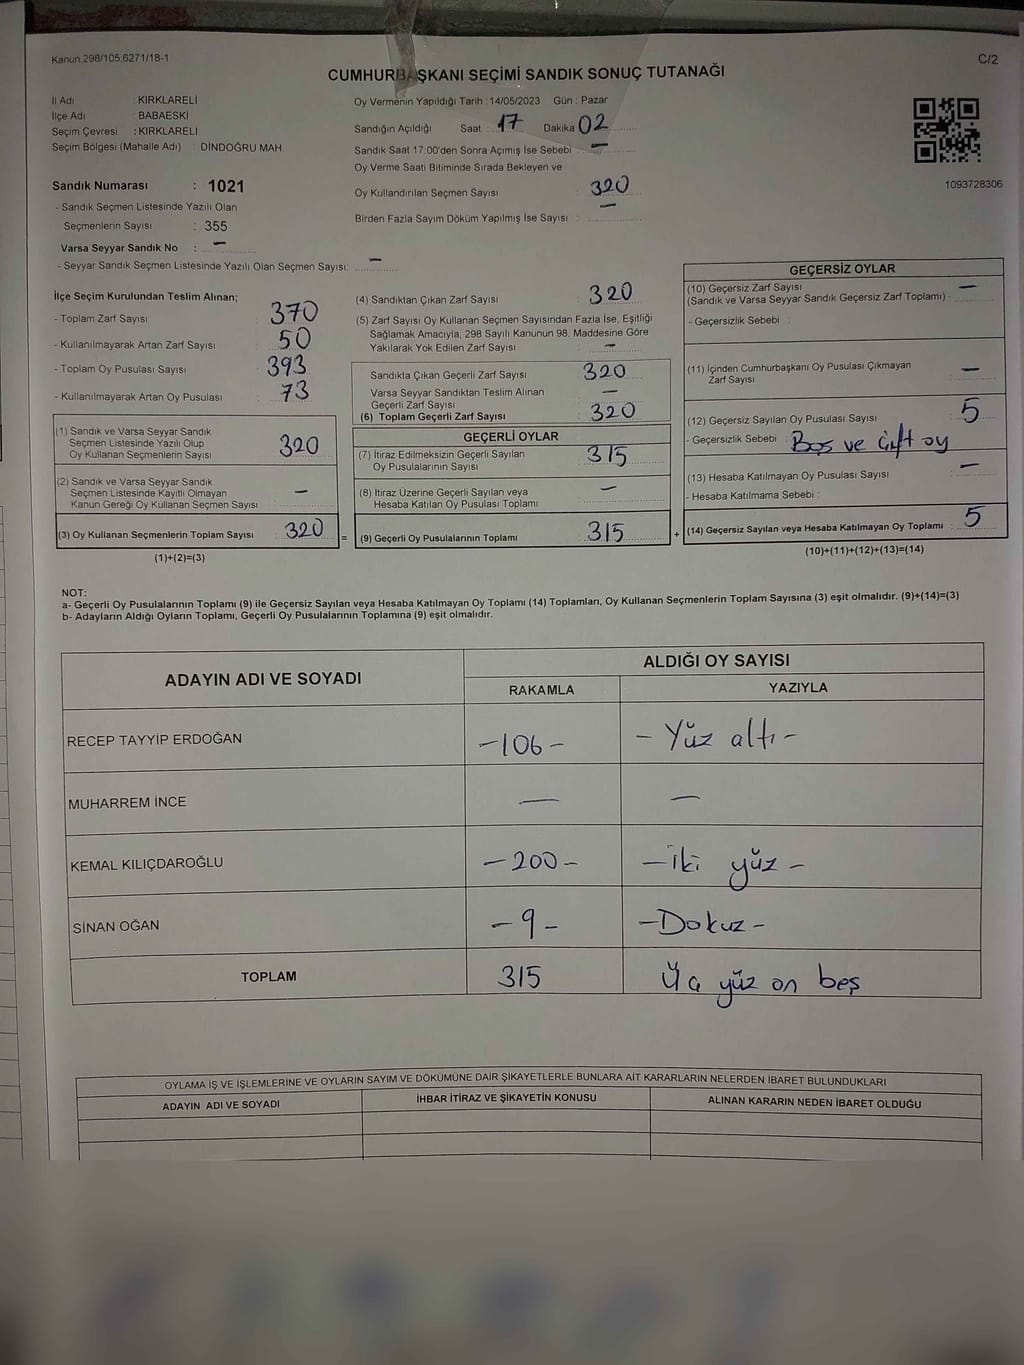 Kanun.298/105,6271/18-1
C/2
CUMHURBAŞKANI SEÇİMİ SANDIK SONUÇ TUTANAĞI
İl Adı : KIRKLARELİ
İlçe Adı : BABAESKİ
Seçim Çevresi : KIRKLARELİ
Seçim Bölgesi (Mahalle Adı) : DİNDOĞRU MAH.
Sandık Numarası : 1021
- Sandık Seçmen Listesinde Yazılı Olan
Seçmenlerin Sayısı : 355
Varsa Seyyar Sandık No : —
- Seyyar Sandık Seçmen Listesinde Yazılı Olan Seçmen Sayısı: —
Oy Vermenin Yapıldığı Tarih : 14/05/2023 Gün : Pazar
Sandığın Açıldığı Saat : 17 Dakika 02
Sandık Saat 17:00'den Sonra Açımış İse Sebebi : —
Oy Verme Saati Bitiminde Sırada Bekleyen ve
Oy Kullandırılan Seçmen Sayısı : 320
Birden Fazla Sayım Döküm Yapılmış İse Sayısı : —
1093728306
İlçe Seçim Kurulundan Teslim Alınan;
- Toplam Zarf Sayısı : 370
- Kullanılmayarak Artan Zarf Sayısı : 50
- Toplam Oy Pusulası Sayısı : 393
- Kullanılmayarak Artan Oy Pusulası : 73
(1) Sandık ve Varsa Seyyar Sandık
Seçmen Listesinde Yazılı Olup
Oy Kullanan Seçmenlerin Sayısı : 320
(2) Sandık ve Varsa Seyyar Sandık
Seçmen Listesinde Kayıtlı Olmayan
Kanun Gereği Oy Kullanan Seçmen Sayısı : —
(3) Oy Kullanan Seçmenlerin Toplam Sayısı : 320
(1)+(2)=(3)
=
(4) Sandıktan Çıkan Zarf Sayısı : 320
(5) Zarf Sayısı Oy Kullanan Seçmen Sayısından Fazla İse, Eşitliği
Sağlamak Amacıyla; 298 Sayılı Kanunun 98. Maddesine Göre
Yakılarak Yok Edilen Zarf Sayısı : —
Sandıkta Çıkan Geçerli Zarf Sayısı : 320
Varsa Seyyar Sandıktan Teslim Alınan
Geçerli Zarf Sayısı : —
(6) Toplam Geçerli Zarf Sayısı : 320
GEÇERLİ OYLAR
(7) İtiraz Edilmeksizin Geçerli Sayılan
Oy Pusulalarının Sayısı : 315
(8) İtiraz Üzerine Geçerli Sayılan veya
Hesaba Katılan Oy Pusulası Toplamı : —
(9) Geçerli Oy Pusulalarının Toplamı : 315
+
GEÇERSİZ OYLAR
(10) Geçersiz Zarf Sayısı
(Sandık ve Varsa Seyyar Sandık Geçersiz Zarf Toplamı) : —
- Geçersizlik Sebebi :
(11) İçinden Cumhurbaşkanı Oy Pusulası Çıkmayan
Zarf Sayısı : —
(12) Geçersiz Sayılan Oy Pusulası Sayısı : 5
- Geçersizlik Sebebi : Boş ve çift oy
(13) Hesaba Katılmayan Oy Pusulası Sayısı : —
- Hesaba Katılmama Sebebi :
(14) Geçersiz Sayılan veya Hesaba Katılmayan Oy Toplamı : 5
(10)+(11)+(12)+(13)=(14)
NOT:
a- Geçerli Oy Pusulalarının Toplamı (9) ile Geçersiz Sayılan veya Hesaba Katılmayan Oy Toplamı (14) Toplamları, Oy Kullanan Seçmenlerin Toplam Sayısına (3) eşit olmalıdır. (9)+(14)=(3)
b- Adayların Aldığı Oyların Toplamı, Geçerli Oy Pusulalarının Toplamına (9) eşit olmalıdır.
ADAYIN ADI VE SOYADI
ALDIĞI OY SAYISI
RAKAMLA YAZIYLA
RECEP TAYYİP ERDOĞAN -106- - Yüz altı -
MUHARREM İNCE — —
KEMAL KILIÇDAROĞLU -200- - İki yüz -
SİNAN OĞAN -9- -Dokuz-
TOPLAM 315 Üç yüz on beş
OYLAMA İŞ VE İŞLEMLERİNE VE OYLARIN SAYIM VE DÖKÜMÜNE DAİR ŞİKAYETLERLE BUNLARA AİT KARARLARIN NELERDEN İBARET BULUNDUKLARI
ADAYIN ADI VE SOYADI İHBAR İTİRAZ VE ŞİKAYETİN KONUSU ALINAN KARARIN NEDEN İBARET OLDUĞU